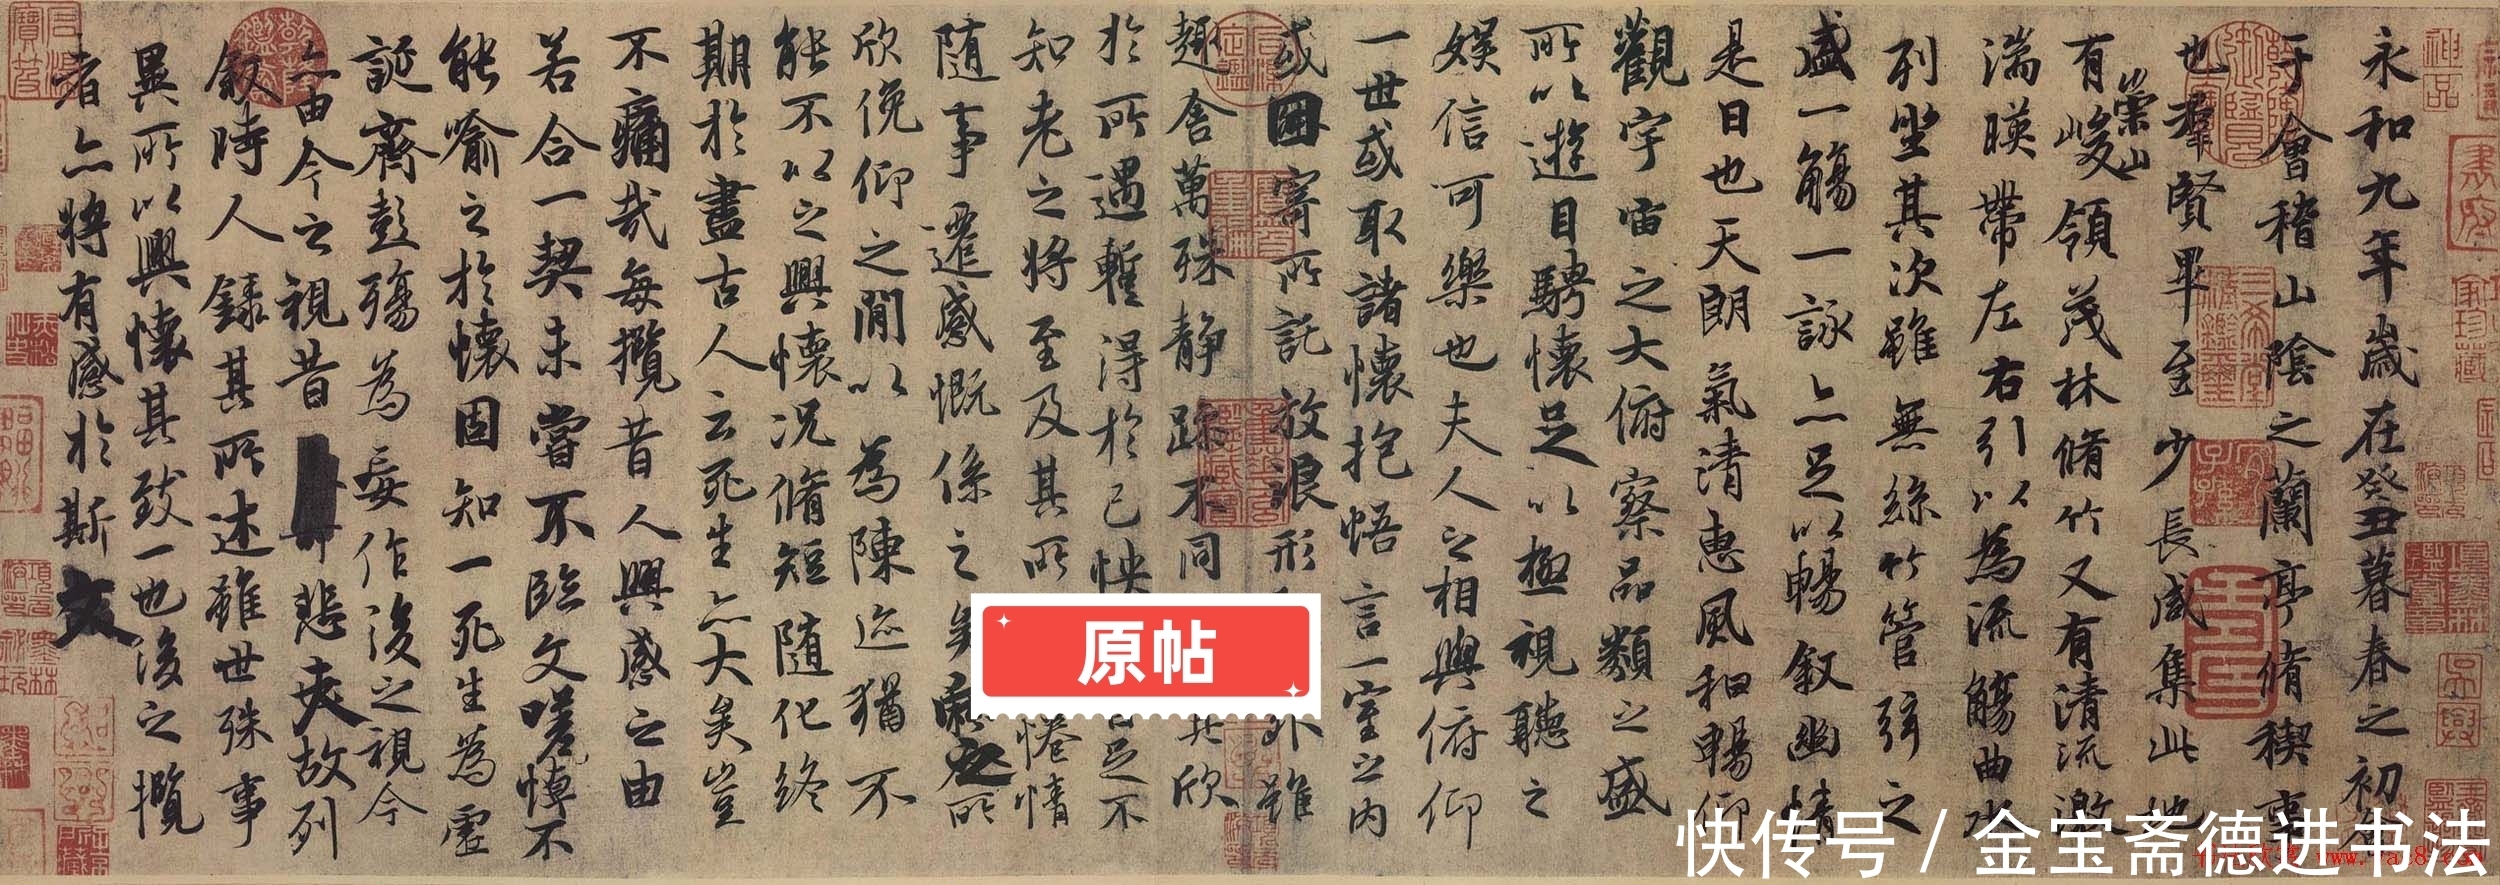 永和九年歲在癸丑暮春之初會
于會稽山陰之蘭亭脩稧事
也羣賢畢至少長咸集此地
有崇山峻領茂林脩竹又有清流激
湍暎帶左右引以為流觴曲水
列坐其次雖無絲竹管弦之
盛一觴一詠亦足以暢敘幽情
是日也天朗氣清惠風和暢仰
觀宇宙之大俯察品類之盛
所以遊目騁懷足以極視聽之
娛信可樂也夫人之相與俯仰
一世或取諸懷抱悟言一室之內
或因寄所託放浪形外雖
趣舍萬殊靜躁不同其欣
於所遇暫得於己怏足不
知老之將至及其所惓情
隨事遷感慨係之矣向之所
欣俛仰之閒以為陳迹猶不
能不以之興懷況脩短隨化終
期於盡古人云死生亦大矣豈
不痛哉每攬昔人興感之由
若合一契未嘗不臨文嗟悼不
能喻之於懷固知一死生為虛
誕齊彭殤為妄作後之視今
亦由今之視昔悲夫故列
敘時人錄其所述雖世殊事
異所以興懷其致一也後之攬
者亦將有感於斯文
原帖
快传号 / 金宝斋德进书法